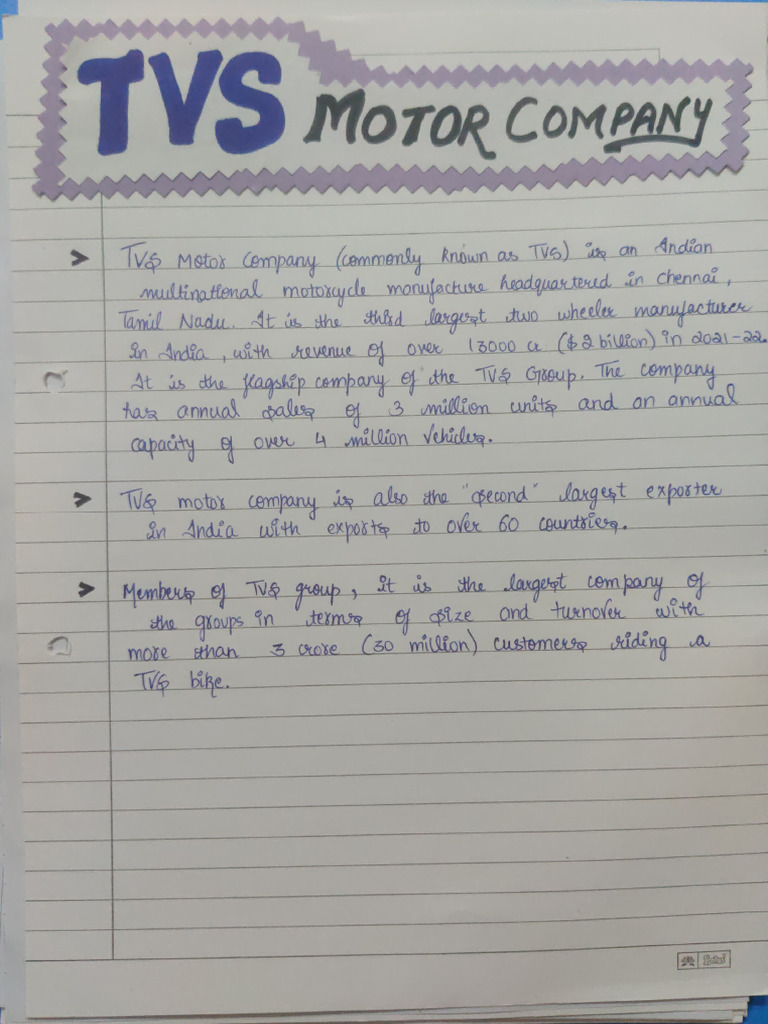 TVS MOTOR COMPANY
> TVS Motor Company (commonly known as TVS) is an Indian
multinational motorcycle manufacture headquartered in Chennai,
Tamil Nadu. It is the third largest two wheeler manufacturer
in India, with revenue of over 13000 cr ($2 billion) in 2021-22.
It is the flagship company of the TVS Group. The company
has annual sales of 3 million units and an annual
capacity of over 4 million vehicles.
> TVS motor company is also the "second" largest exporter
in India with exports to over 60 countries.
> Members of TVS group, it is the largest company of
the groups in terms of size and turnover with
more than 3 crore (30 million) customers riding a
TVS bike.